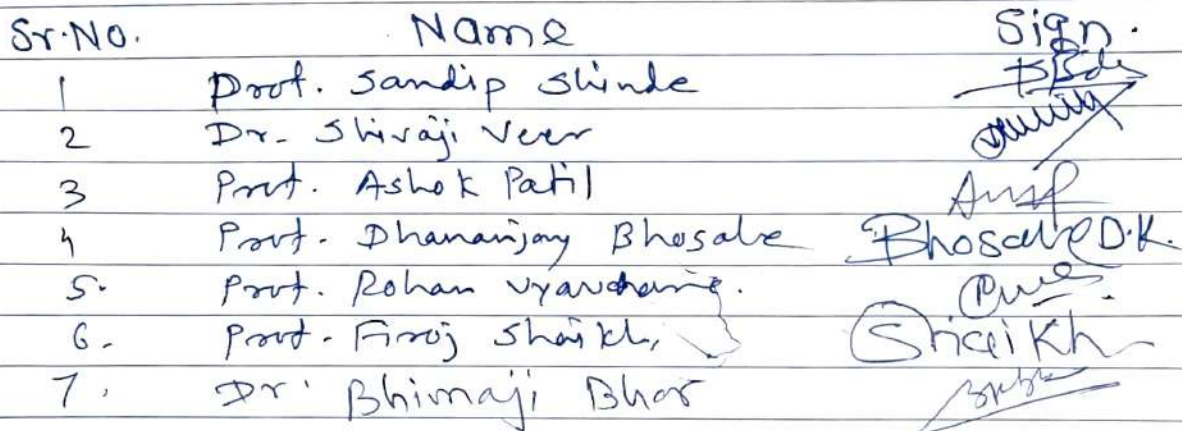 Sr.No. Name Sign.
1 Prof. Sandip Shinde
2 Dr. Shivaji Veer
3 Prof. Ashok Patil
4 Prof. Dhananjay Bhosale Bhosale D.K.
5. Prof. Rohan
6. Prof. Firoj Shaikh, Shaikh
7. Dr. Bhimaji Bhor